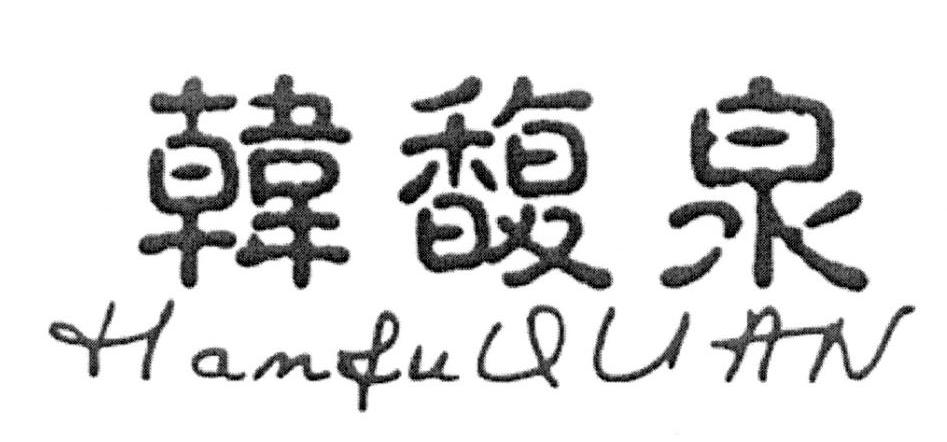 韓馥泉
HanfuQUAN